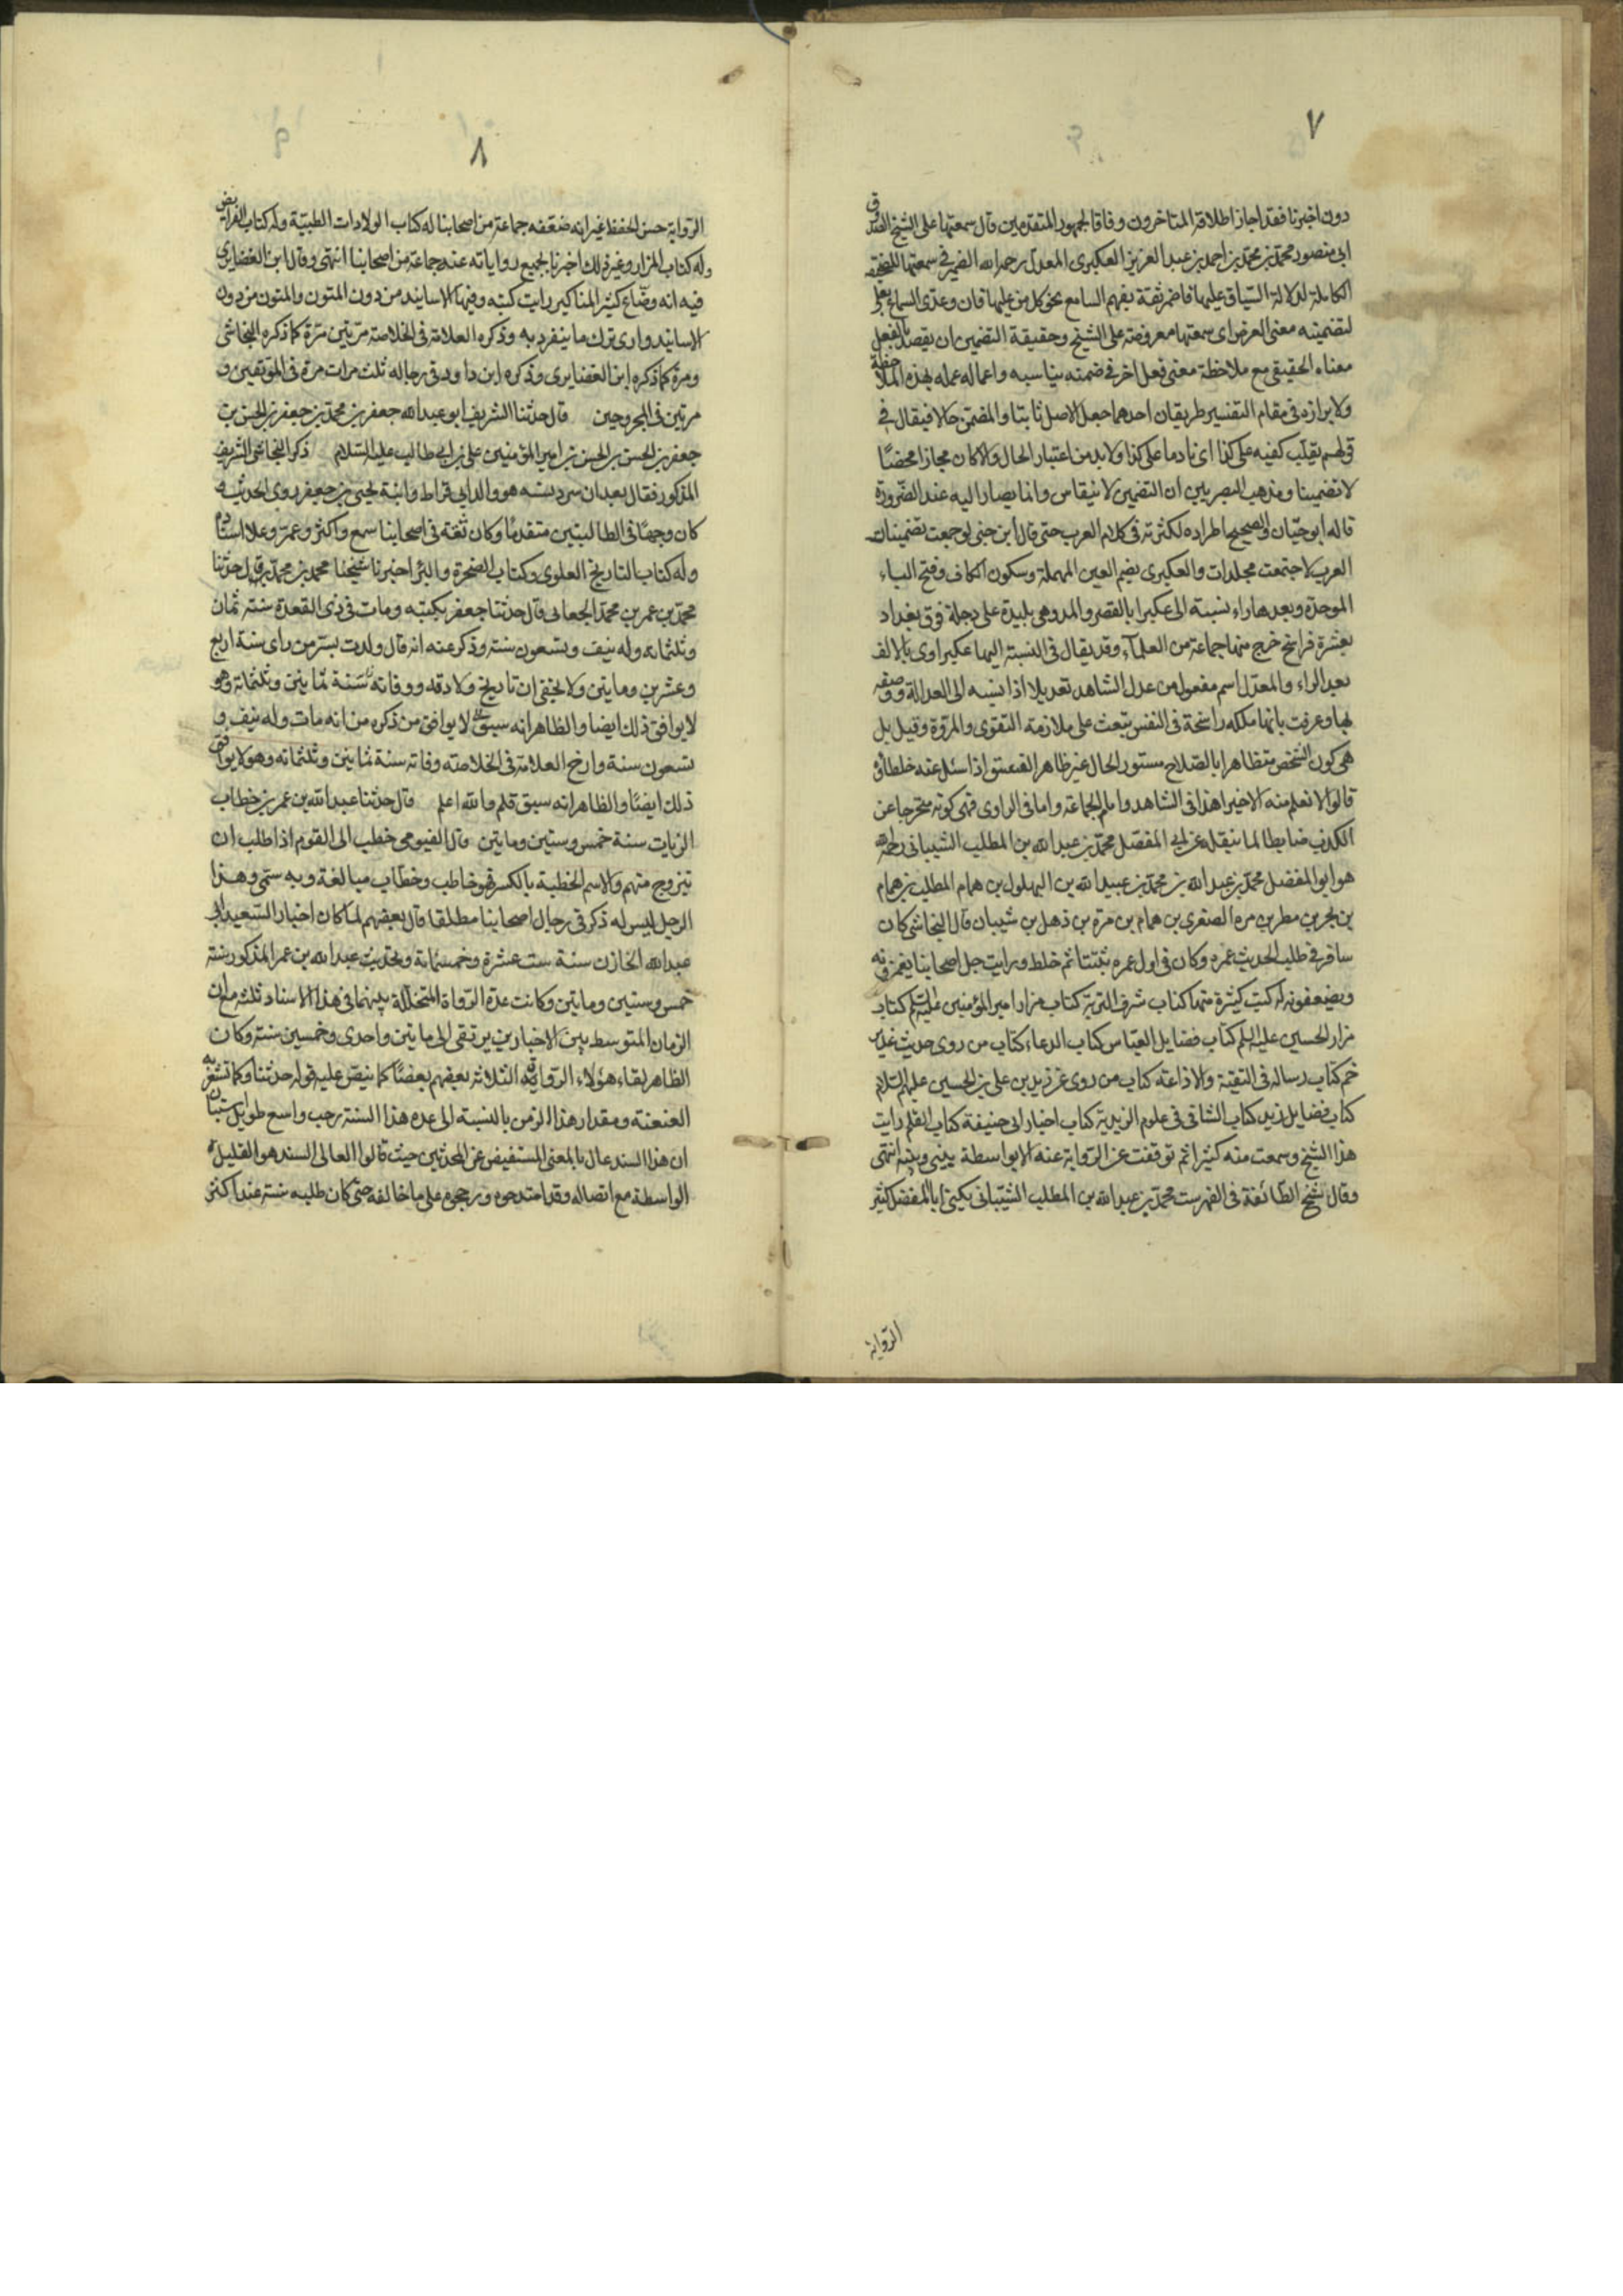 ٧
دون اخبرنا فقد اجاز اطلاقه المتاخرون وفاقا لجمهور المتقدمين قال سمعتها على الشيخ الصدوق
ابى منصور محمد بن محمد بن احمد بن عبد العزيز العكبرى المعدل رحمه الله الضمير فى سمعتها للصحيفة
الكاملة لدلالة السياق عليها فاضمر ثقة بفهم السامع نحو كل من عليها فان وعدى السماع بعلى
لتضمينه معنى العرض اى سمعتها معروضة على الشيخ وحقيقة التضمين ان يقصد بالفعل
معناه الحقيقى مع ملاحظة معنى فعل اخر فى ضمنه يناسبه واعماله عمله بهذه الملاحظة
ولابرازه فى مقام التفسير طريقان احدهما جعل الاصل ثابتا والمضمن حالا فيقال فى
قولهم يقلب كفيه على كذا اى نادما على كذا ولا بد من اعتبار الحال والا كان مجازا محضا
لا تضمينا ومذهب البصريين ان التضمين لا ينقاس وانما يصار اليه عند الضرورة
قاله ابو حيان والصحيح اطراده لكثرته فى كلام العرب حتى قال ابن جنى لو جمعت تضمينات
العرب لاجتمعت مجلدات والعكبرى بضم العين المهملة وسكون الكاف وفتح الباء
الموحدة وبعدها راء نسبة الى عكبرا بالقصر والمد وهى بليدة على دجلة فوق بغداد
بعشرة فراسخ خرج منها جماعة من العلماء وقد يقال فى النسبة اليها عكبراوى بالالف
بعد الراء والمعدل اسم مفعول من عدل الشاهد تعديلا اذا نسبه الى العدالة ووصفه
بها وعرفت بانها ملكة راسخة فى النفس تبعث على ملازمة التقوى والمروة وقيل بل
هى كون الشخص متظاهرا بالصلاح مستور الحال غير ظاهر الفسق اذا سئل عنه خلطاؤه
قالوا لا نعلم منه الا خيرا هذا فى الشاهد وامام الجماعة واما فى الراوى فهى كونه متحرجا عن
الكذب ضابطا لما ينقله عن ابى المفضل محمد بن عبد الله بن المطلب الشيبانى رحمه الله
هو ابو المفضل محمد بن عبد الله بن محمد بن عبيد الله بن البهلول بن همام المطلب بن همام
بن بحر بن مطر بن مره الصغرى بن همام بن مرة بن ذهل بن شيبان قال النجاشى كان
سافر فى طلب الحديث عمره وكان فى اول عمره ثبتا ثم خلط ورايت جل اصحابنا يغمزونه
ويضعفونه له كتب كثيرة منها كتاب شرف التربة كتاب مزار امير المؤمنين عليه السلم كتاب
مزار الحسين عليه السلم كتاب فضايل العباس كتاب الدعاء كتاب من روى حديث غدير
خم كتاب رساله فى التقية والاذاعة كتاب من روى عن زيد بن على بن الحسين عليهم السلام
كتاب فضايل زيد كتاب الشافى فى علوم الزيدية كتاب اخبار ابى حنيفة كتاب القلم رايت
هذا الشيخ وسمعت منه كثيرا ثم توقفت عن الرواية عنه الا بواسطة بينى وبينه انتهى
وقال شيخ الطائفة فى الفهرست محمد بن عبد الله بن المطلب الشيبانى يكنى ابا المفضل كثير
الرواية
٨
الرواية حسن الحفظ غير انه ضعفه جماعة من اصحابنا له كتاب الولادات الطيبة وله كتاب الفرايض
وله كتاب المزار وغير ذلك اخبرنا بجميع رواياته عنه جماعة من اصحابنا انتهى وقال ابن الغضايرى
فيه انه وضاع كثير المناكير رايت كتبه وفيها الاسانيد من دون المتون والمتون من دون
الاسانيد وارى ترك ما ينفرد به وذكره العلامة فى الخلاصة مرتين مرة كما ذكره النجاشى
ومرة كما ذكره ابن الغضايرى وذكره ابن داود فى رجاله ثلث مرات مرة فى الموثقين و
مرتين فى المجروحين قال حدثنا الشريف ابو عبد الله جعفر بن محمد بن جعفر بن الحسن بن
جعفر بن الحسن بن الحسن بن امير المؤمنين على بن ابى طالب عليه السلام ذكر النجاشى الشريف
المذكور فقال بعد ان سرد نسبه هو والد ابى قيراط وابنه يحيى بن جعفر روى الحديث
كان وجها فى الطالبيين متقدما وكان ثقة فى اصحابنا سمع واكثر وعمر وعلا اسناده
وله كتاب التاريخ العلوى وكتاب الصخرة والبئر اخبرنا شيخنا محمد بن محمد قال حدثنا
محمد بن عمر بن محمد الجعابى قال حدثنا جعفر بكتبه ومات فى ذى القعدة سنة ثمان
وثلثمائه وله نيف وتسعون سنة وذكر عنه انه قال ولدت بسر من راى سنة اربع
وعشرين ومايتين ولا يخفى ان تاريخ ولادته ووفاته سنة ثمانين وثلثمائة وهو
لا يوافق ذلك ايضا والظاهر انه سبق لا يوافق من ذكره من انه مات وله نيف و
تسعون سنة وارخ العلامة فى الخلاصه وفاته سنة ثمانين وثلثمائه وهو لا يوافق
ذلك ايضا والظاهر انه سبق قلم والله اعلم قال حدثنا عبد الله بن عمر بن خطاب
الزيات سنة خمس وستين ومايتين قال الفيومى خطب الى القوم اذا طلب ان
يتزوج منهم والاسم الخطبة بالكسر فهو خاطب وخطاب مبالغة وبه سمى وهذا
الرجل ليس له ذكر فى رجال اصحابنا مطلقا قال بعضهم لما كان اخبار السعيد ابى
عبد الله الخازن سنة ست عشرة وخمسمائة وتحديث عبد الله بن عمر المذكور سنة
خمس وستين ومايتين وكانت عدة الرواة المتخللة بينهما فى هذا الاسناد ثلثه مع ان
الزمان المتوسط بين الاخبارين يرتقى الى مايتين واحدى وخمسين سنة وكان
الظاهر لقاء هؤلاء الرواة الثلاثه بعضهم بعضا كما ينص عليه قوله حدثنا وكما تشعر به
العنعنة ومقدار هذا الزمن بالنسبة الى عده هذا السند رحب واسع طويل استبان
ان هذا السند عال بالمعنى المستفيض عن المحدثين حيث قالوا العالى السند هو القليل
الواسطة مع اتصاله وقد امتدحوه ورجحوه على ما خالفه حتى كان طلبه سنة عند اكثر